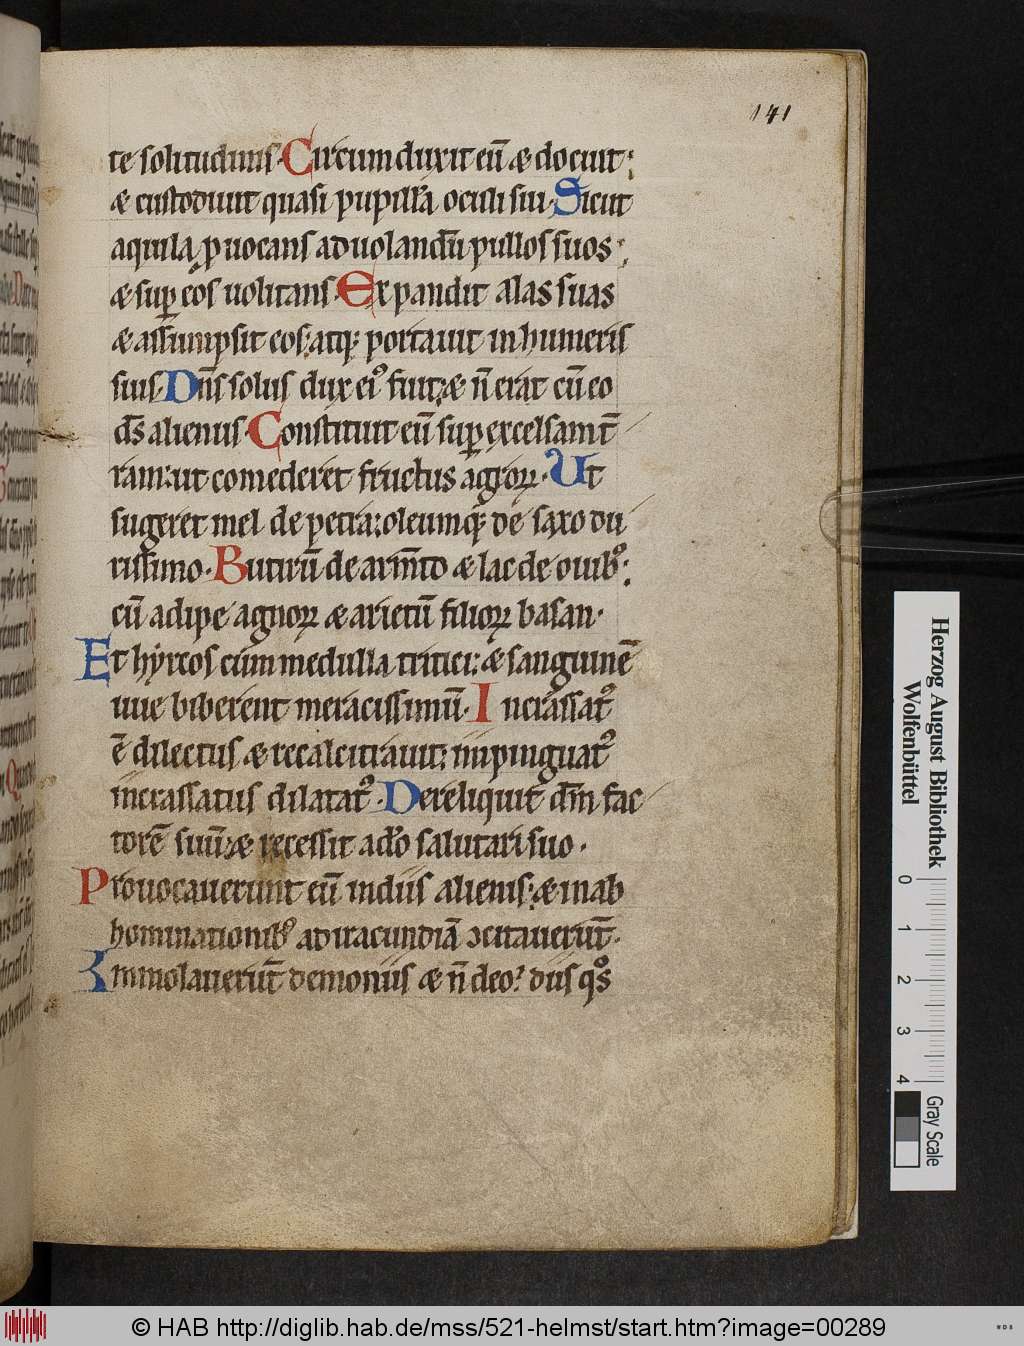 141
te solitudinis. Circumduxit eū & docuit:
& custodiuit quasi pupillā oculi sui. Sicut
aquila ꝓuocans ad uolandū pullos suos:
& suꝑ eos uolitans. Expandit alas suas
& assumpsit eos: atq; portauit in humeris
suis. Dn̄s solus dux eiꝰ fuit: & n̄ erat cū eo
ds̄ alienus. Constituit eū suꝑ excelsam t̄
ram: ut comederet fructus agroꝝ. Ut
sugeret mel de petra: oleumq; de saxo du
rissimo. Butirū de arm̄to & lac de ouibꝰ:
cū adipe agnoꝝ & arietū filioꝝ basan.
Et hyrcos cum medulla tritici: & sanguinē
uue biberent meracissimū. Incrassatꝰ
ē dilectus & recalcitrauit: inpinguatꝰ
incrassatus dilatatꝰ. Dereliquit dm̄ fac
torē suū: & recessit a do salutari suo.
Prouocauerunt eū in diis alienis: & in ab
hominationibꝰ ad iracundiā ↄcitauerūt.
Immolauerūt demoniis & n̄ deo: diis qͦs
Herzog August Bibliothek
Wolfenbüttel
0 1 2 3 4
Gray Scale
© HAB http://diglib.hab.de/mss/521-helmst/start.htm?image=00289
WDB